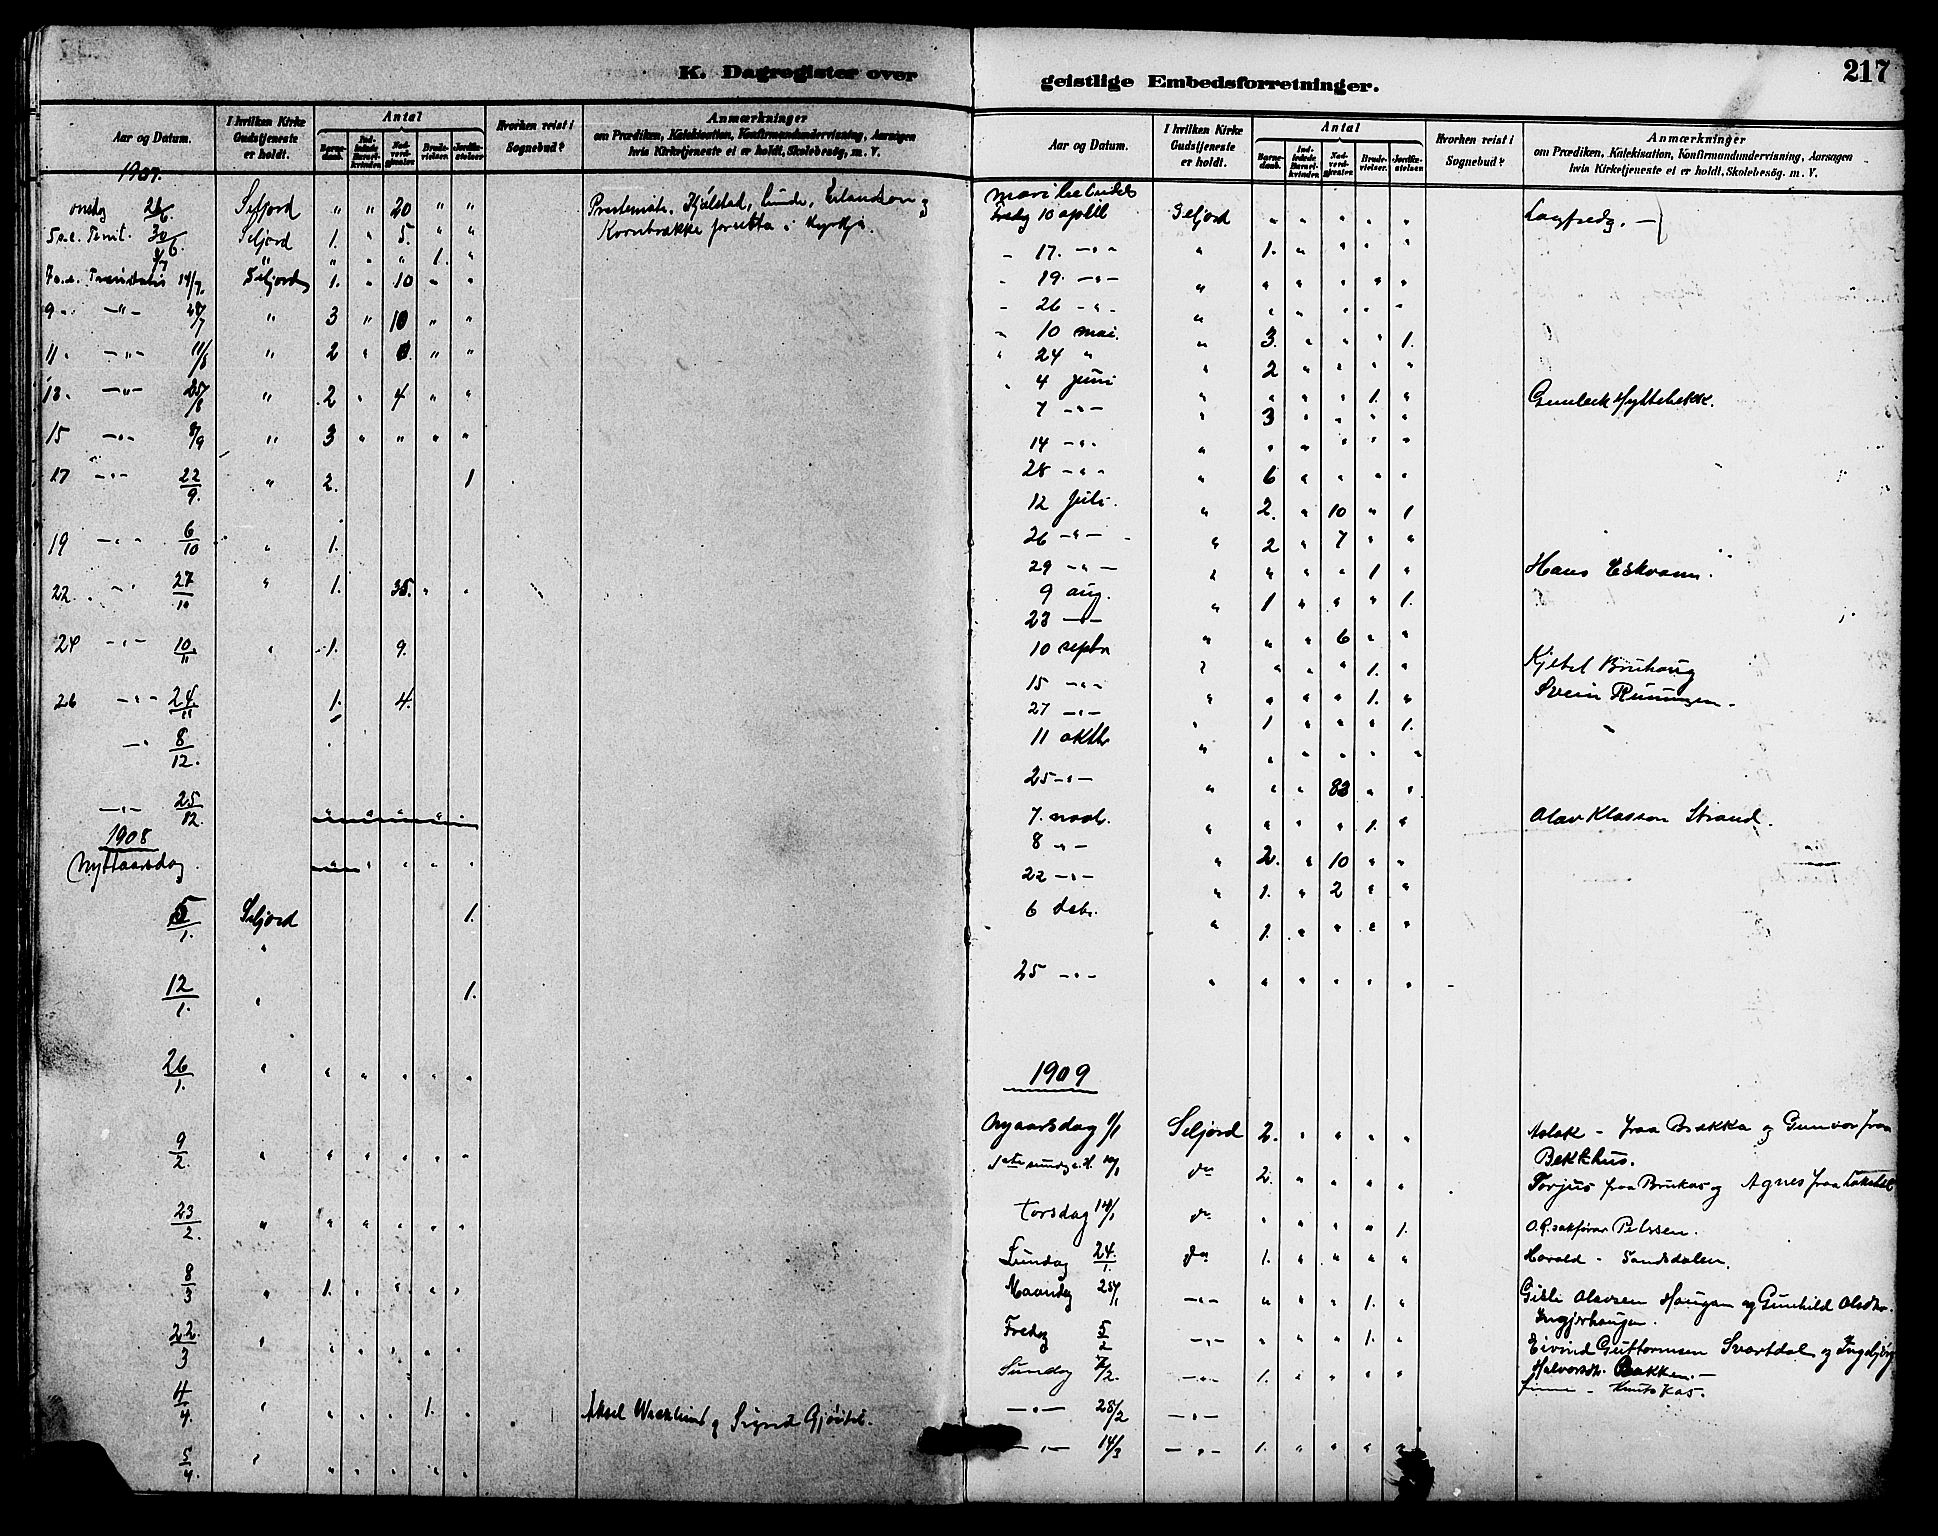 K. Dagregister over
Aar og Datum. I hvilken Kirke Gudstjeneste er holdt. Antal Barnedaab. Indledede Barselkvinder. Nadverdgjester. Brudevielser. Jordfæstelser. Hvorhen reist i Sognebud? Anmærkninger om Prædiken, Katekisation, Konfirmandundervisning, Aarsagen hvis Kirketjeneste ei er holdt, Skolebesög, m. V.
1907.
onsdag 26/6. Seljord " " 20 " "
Kornbrække forretta i kyrkja.
5 s.e. Trinit. 30/6. Seljord 1. " 5. " "
3/7 " " " " 1. "
7 s.e. Trinitatis 14/7. Seljord 1. " 10 " "
9 " —"— 28/7 " 3 " 10 " "
11 " —"— 11/8 " 2 " " "
13. —"— 25/8 " 2 " 4 " "
15 —"— 8/9 " 3 " " " "
17 —"— 22/9. " 2. 1
19 —"— 6/10 " 1.
22. —"— 27/10 " 1. 35. " "
24 —"— 10/11 " 1. 9.
26 —"— 24/11 1. 4.
—"— 8/12.
—"— 25/12. " " " " "
1908
Nyttaarsdag " " " " "
5/1. Seljord 1.
"
12/1. " 1.
26/1. " " " " " "
9/2. " " " " " "
23/2. " " " " " "
8/3 " 1. " " " "
22/3 " " " " " "
4/4. " " " " 1. " Aksel Wæxlund og Signe Gjøitil.
5/4. " " " " " "
geistlige Embedsforretninger.
217
Aar og Datum. I hvilken Kirke Gudstjeneste er holdt. Antal Barnedaab. Indledede Barselkvinder. Nadverdgjester. Brudevielser. Jordfæstelser. Hvorhen reist i Sognebud? Anmærkninger om Prædiken, Katekisation, Konfirmandundervisning, Aarsagen hvis Kirketjeneste ei er holdt, Skolebesög. m. V.
Fredag 10 april Seljord " " " " " Langfredag. —
" 17. —"— " 1. " " " "
" 19. —"— " " " " " "
" 26 —"— " " " " " "
" 10 mai. " 3. " " " 1.
" 24 " " 2 " " " "
" 4 juni " " " " 1. " Gunleik Hyttebekk.
7 —"— " 3 " " " "
14 —"— " " " " " "
28 —"— " 6 " " " "
12 juli. " 2. " 10 " 1
26 —"— " 2 " 7 " "
29 —"— " " " " 1 " Hans Eskvann.
9 aug. " 1 " " " 1.
23 —"— " " " 6 " "
10 septbr " " " " 1. " Kjetil Bruhaug
15 —"— " " " " 1. " Svein Runingen.
27 —"— " 1 " " " 1.
11 oktbr " " " " " "
25 —"— " " " 83 " "
7. novb. " " " " 1. " Olav Klasson Strand.
8 —"— " 2. " 10 " "
22 —"— " 1. " 2 " "
6 debr. " 1. " " " "
25 —"— " " " " " "
1909
Nyaarsdag 1/1 Seljord 2. " " " " Aslak — fraa Brækka og Gunvor fraa
Bekkhus.
1ste sundag e. H. 10/1 do 2. " " " " Torjus fraa Brukas og Agnes fraa
Torsdag 14/1 do " " " " 1. O.R.sakførar Petersen.
Sundag 24/1. do 1. " " " " Harald — Sandsdalen.
Maandag 25/1 —"— " " " 1. " Gisli Olavsen Haugan og Gunhild Olsdtr.
Ingjerhaugen.
Fredag 5/2 —"— " " " 1. " Eivind Guttormsen Svartdal og Ingebjørg
Halvorsdtr. Bakken. —
Sundag 7/2. —"— 1. " " " " — Knutskas.
—"— 28/2 —"—
—"— 14/3 —"— 1. " " " "